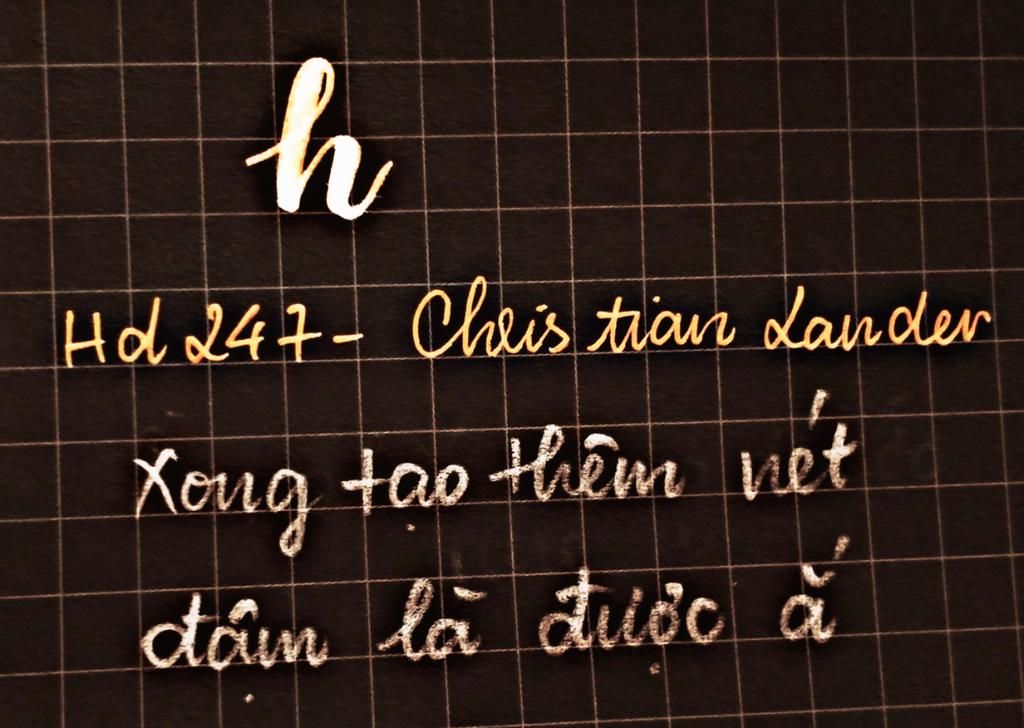 h
Hd 247- Christian Lander
Xong tạo thêm nét
đậm là được ắ